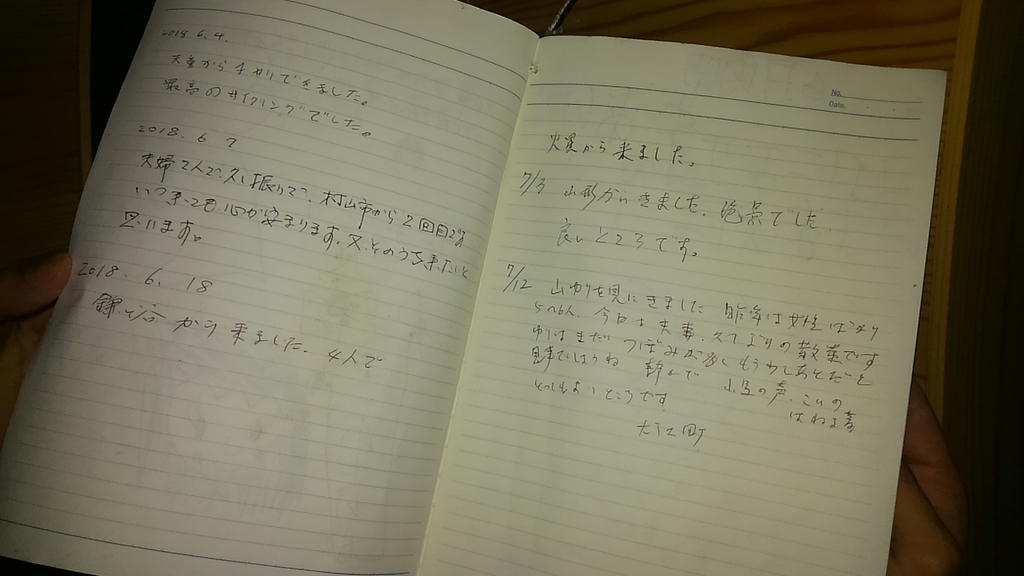 2018 6.4.
天童からチャリできました。
最高のサイクリングでした。
2018. 6 7
夫婦2人で久し振りで、村山市から2回目です
いつ来ても心が安まります。又そのうち来たいと
思います。
2018. 6. 18
銀山 から来ました。4人で
No.
Date.
から来ました。
7/3 山形からきました。絶景でした。
良いところです。
7/12 山ゆりを見にきました 昨年は女性ばかり
5〜6人、今日は夫妻、久しぶりの散策です
ゆりはまだつぼみが多し もう少しあとだと
見事でしょうね 小鳥の声、こいの
はねる音
とってもよいところです
大江町